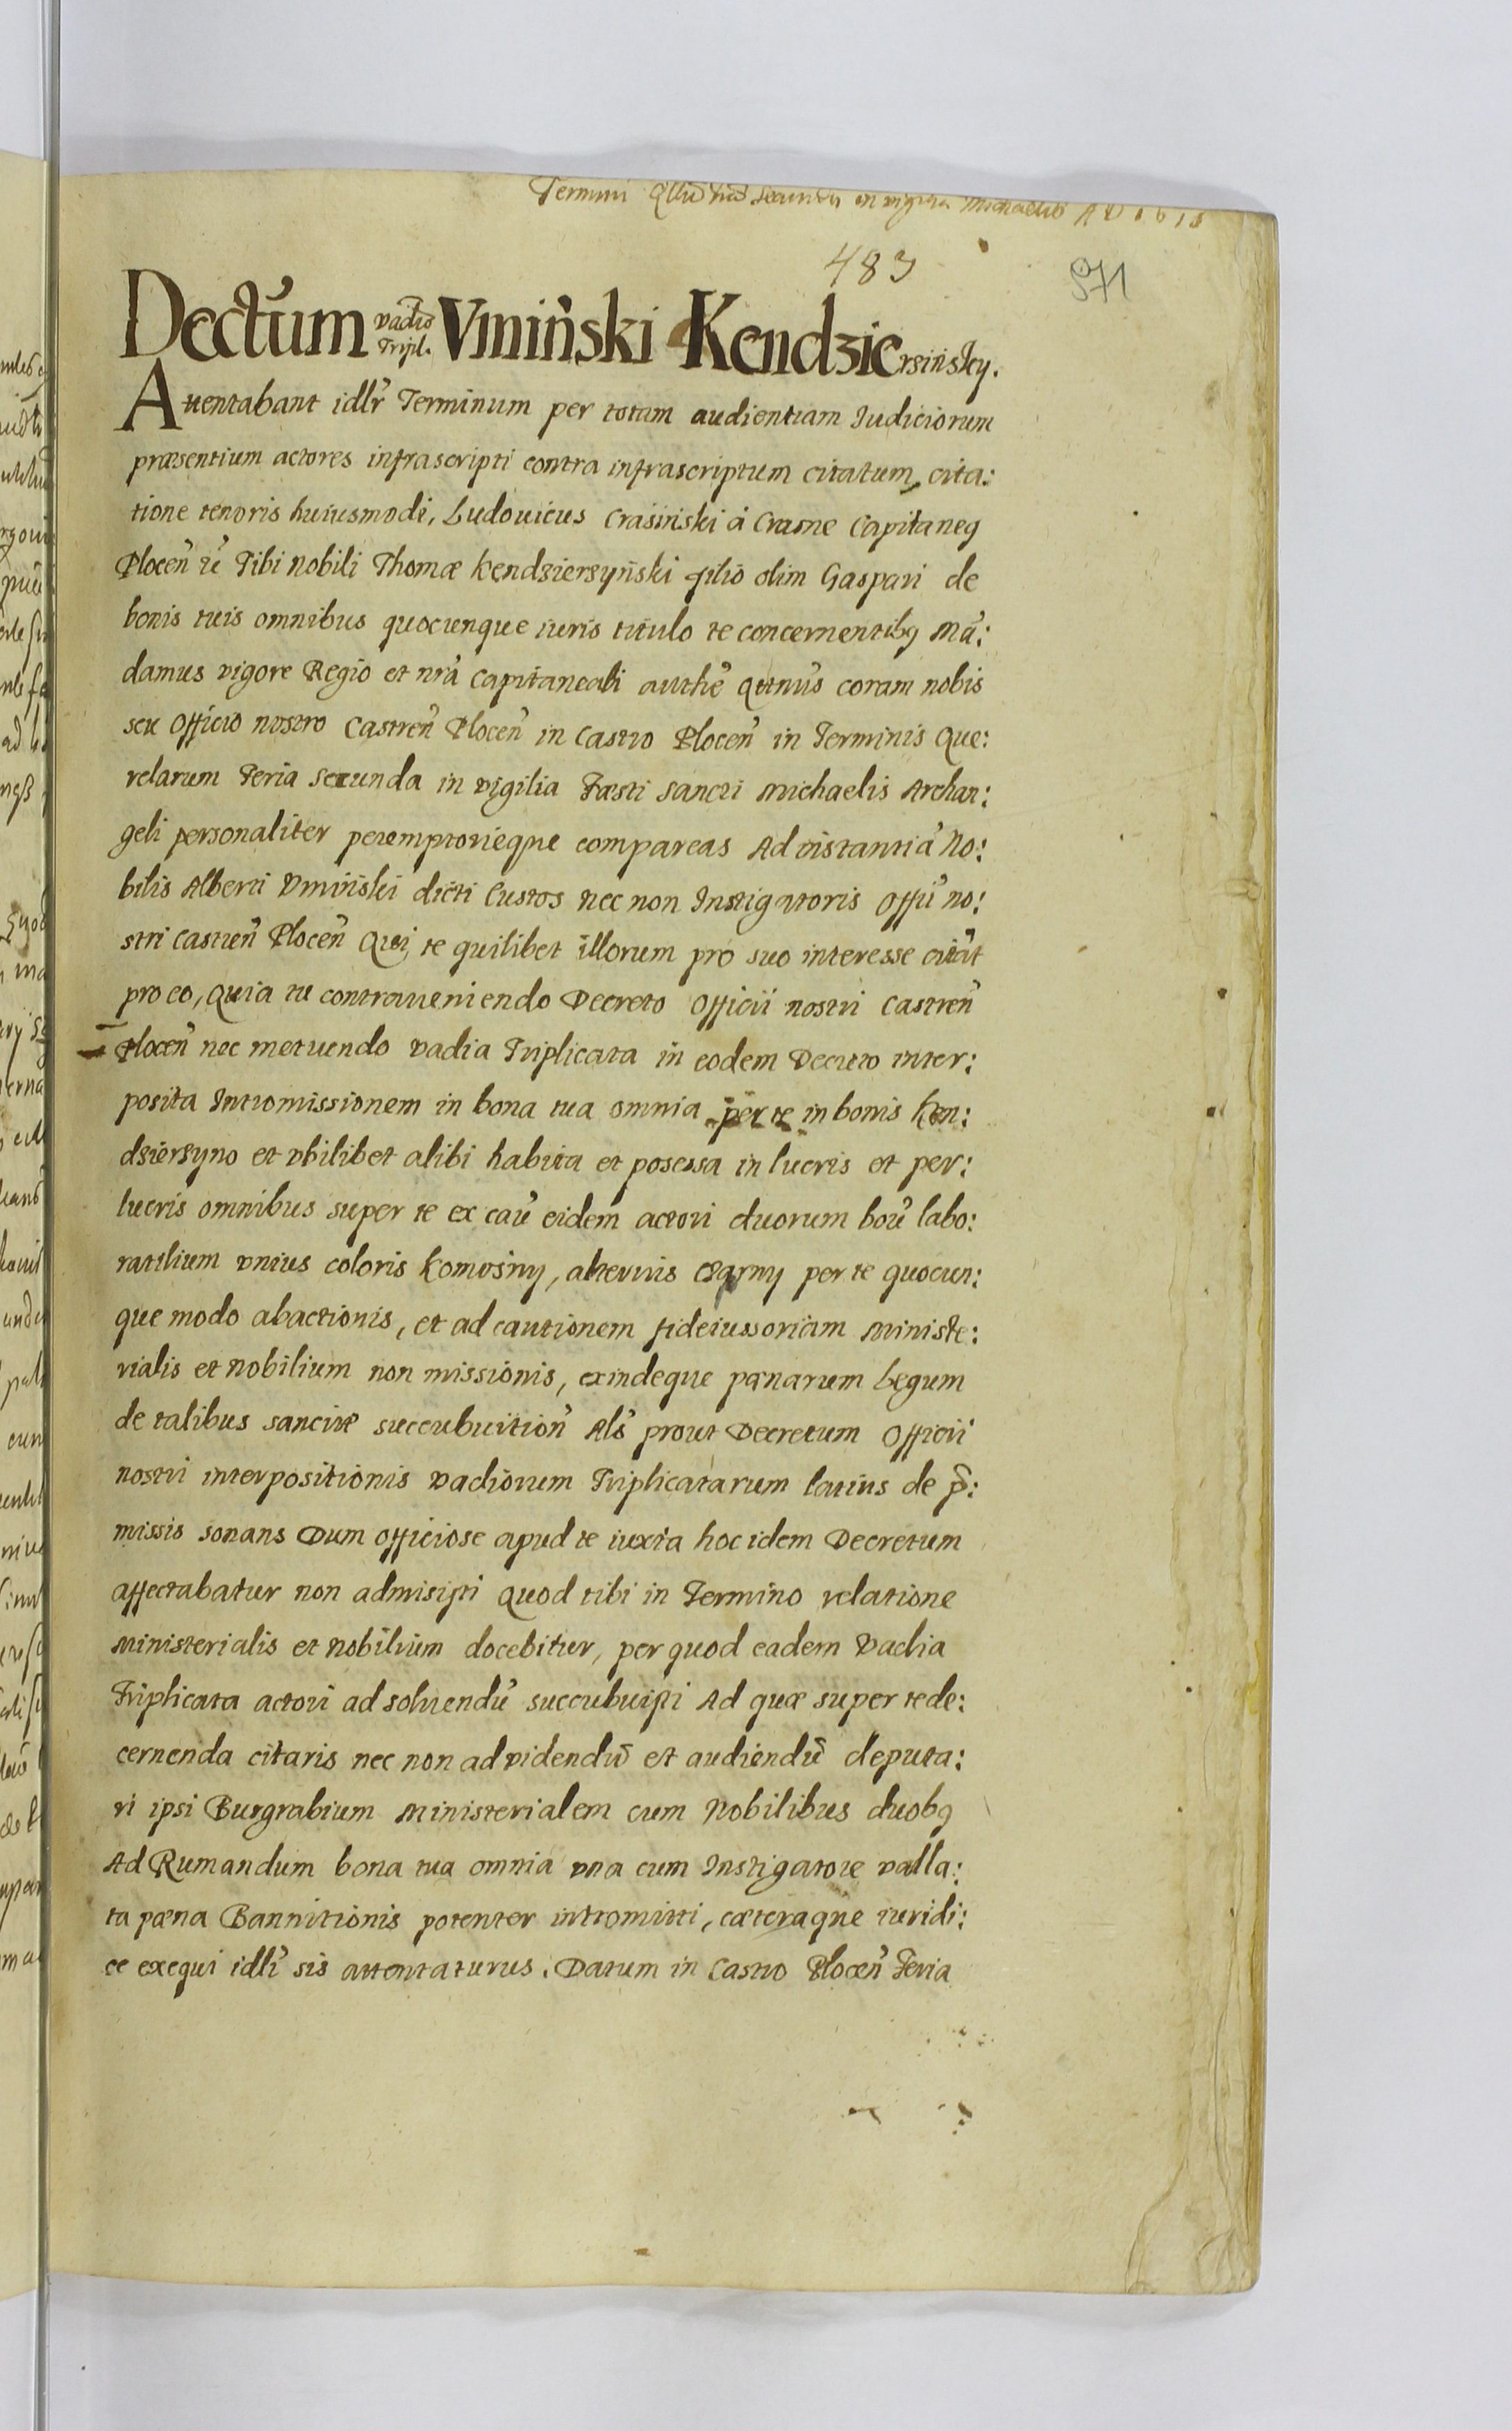 Termini Qllru feria secunda in vigilia Michaelis A D 1615
483
571
Dectum vadior Tripl. Vmiński Kendzie rsiński.
Attentabant idlr Terminum per totam audientiam Iudiciorum
præsentium actores infrascripti contra infrascriptum citatum, cita:
tione tenoris huiusmodi, Ludouicus Crasiński à Crasne Capitaneg
Plocen̄ rc Tibi nobili Thomæ Kendzierzyński filio olim Gaspari de
bonis tuis omnibus quocunque iuris titulo te concernentibg Ma:
damus vigore Regio et nra Capitaneali authe qtnus coram nobis
seu Officio nostro Castren̄ Plocen̄ in Castro Plocen̄ in Terminis Que:
relarum Feria Secunda in vigilia Fæsti Sancti Michaelis Archan:
geli personaliter peremptorieque compareas Ad instantiā No:
bilis Alberti Vmiński dicti Custos nec non Instigatoris Offii no:
stri Castren̄ Plocen̄ Qui, te quilibet illorum pro suo interesse citāt
pro eo, Quia tu contraueniendo Decreto Officii nostri Castren̄
Plocen̄ nec metuendo vadia Triplicata in eodem Decreto inter:
posita Intromissionem in bona tua omnia per te in bonis Ken:
dzierzyno et vbilibet alibi habita et posessa in lucris et per:
lucris omnibus super te ex cau eidem actori duorum bou labo:
ratilium vnius coloris komosiny, alterius czarny per te quocun:
que modo abactionis, et ad cautionem fideiussoriam Ministe:
rialis et Nobilium non missionis, exindeque pænarum Legum
de talibus sancitæ succubuition̄ Als prout Decretum Officii
nostri interpositionis vadiorum Triplicatarum latius de p̄:
missis sonans Dum Officiose apud te iuxta hoc idem Decretum
affectabatur non admisisti Quod tibi in Termino relatione
Ministerialis et Nobilium docebitur, per quod eadem Vadia
Triplicata actori ad soluendū succubuisti Ad quæ super te de:
cernenda citaris nec non ad videndū et audiendū deputa:
ri ipsi Burgrabium Ministerialem cum Nobilibus duobg
Ad Rumandum bona tua omnia vna cum Instigatore valla:
ta pæna Bannitionis potenter intromitti, cæteraque iuridi:
ce exequi idlr sis attentaturus. Datum in Castro Plocen̄ Feria